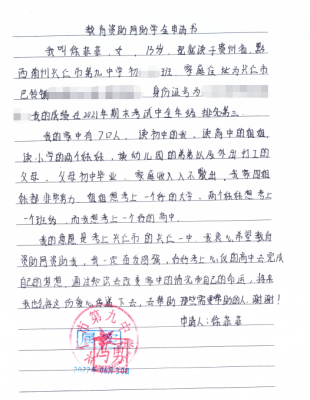 教育资助网助学金申请书
我叫徐蕊蕊,女,13岁,现就读于贵州省黔
西南州兴仁市第九中学初 班,家庭住址为兴仁市
巴铃镇 身份证号为
我的成绩在2021年期末考试中全年级排名第三。
我的家中有7口人,读初中的我、读高中的姐姐,
读小学的两个妹妹,读幼儿园的弟弟以及外出打工的
父母,父母初中毕业,家庭收入入不敷出,我家四姐
妹都非常努力,姐姐想考上一个好的大学,两个妹妹想考上
一个班级,而我想考上一个好的高中。
我的愿望是考上兴仁市的兴仁一中,我衷心希望教育
资助网资助我,我一定奋发图强,好好考上心仪的高中去完成
自己的梦想,通过知识去改变家中的情况和自己的命运,将来
我也会将这份爱心传递下去,去帮助那些需要帮助的人,谢谢!
申请人:徐蕊蕊
市第九中
同意
2022年06月30日